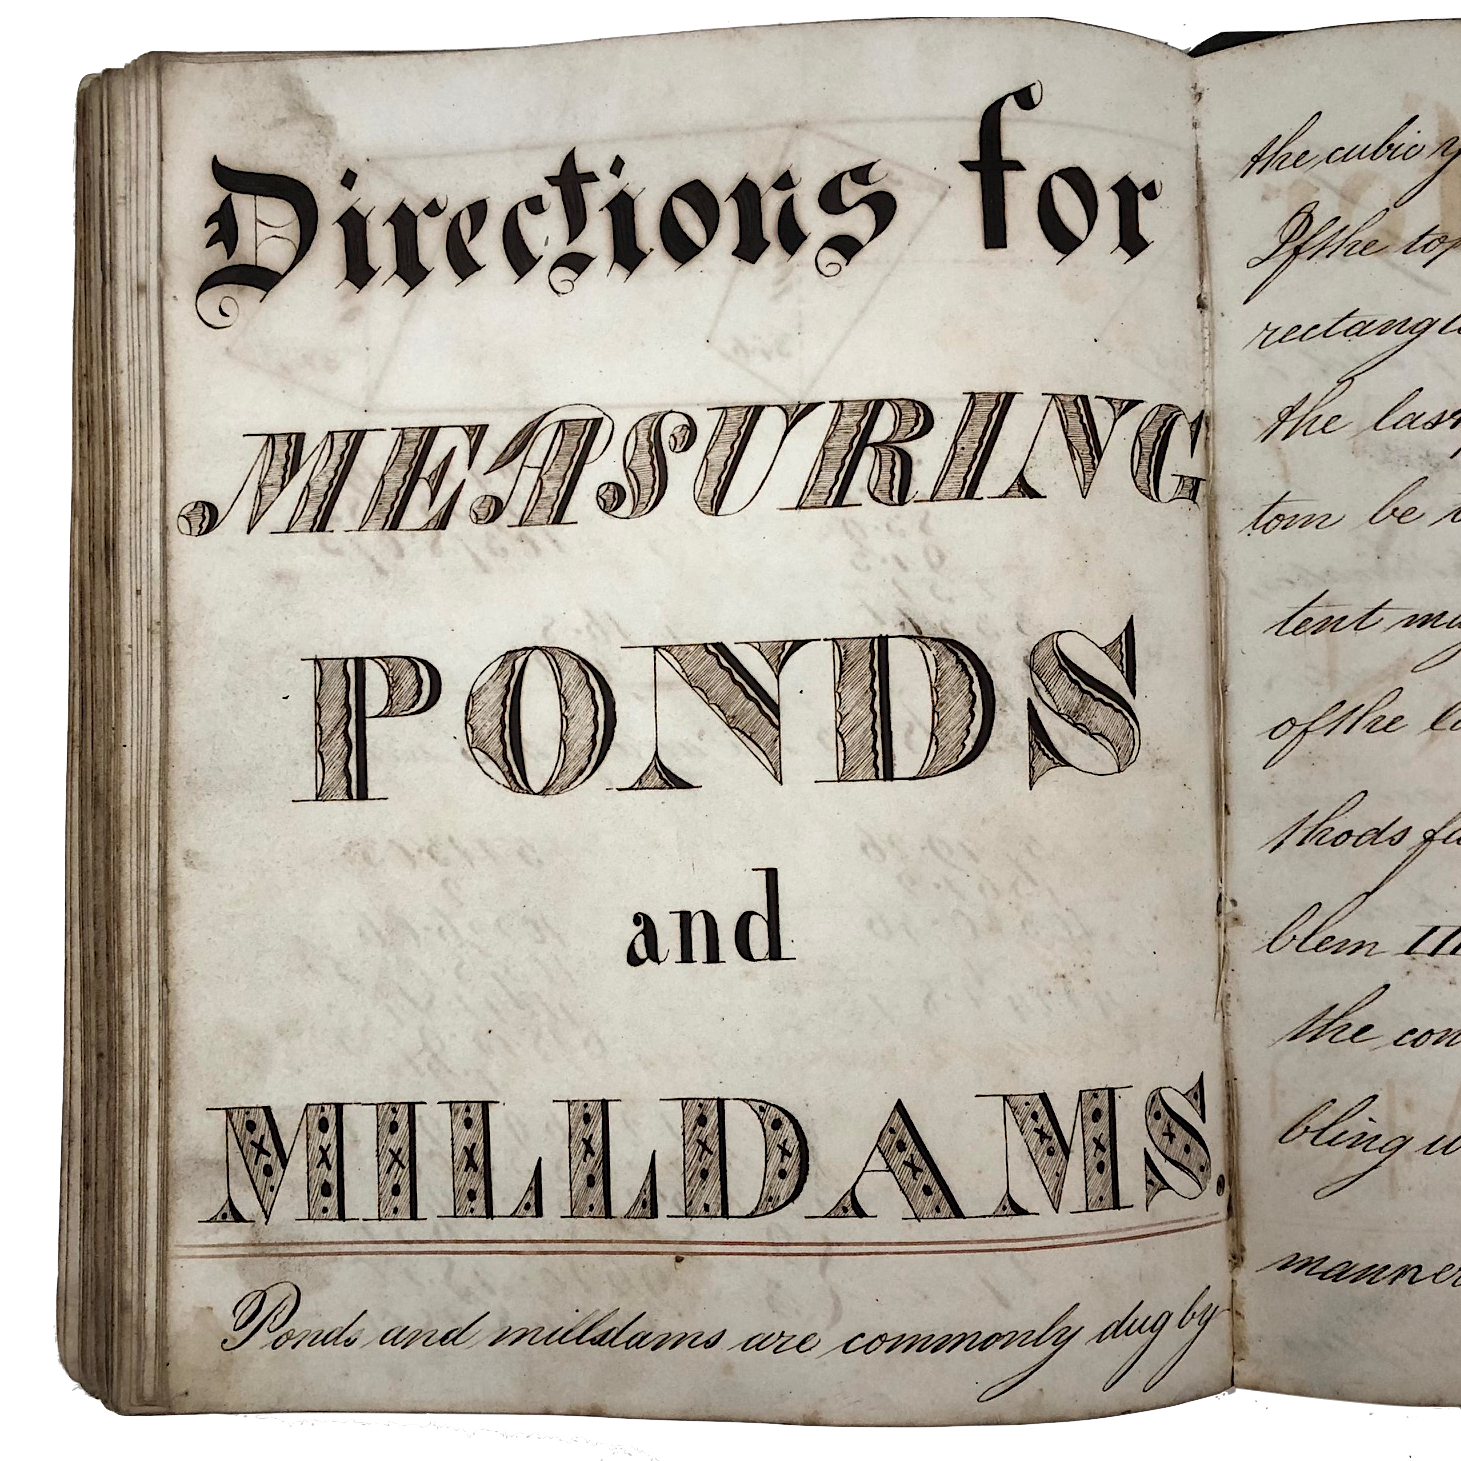 Directions for
MEASURING
PONDS
and
MILLDAMS.
Ponds and milldams are commonly dug by
the cubic y
If the top
rectangle
the las
tom be
tent m
of the l
thods f
blem III
the con
bling w
manner